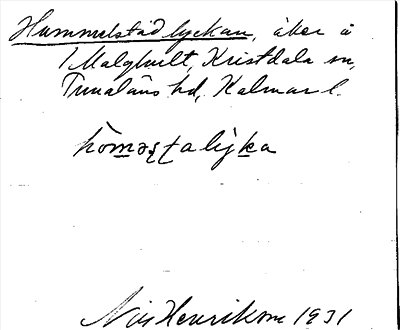 Hummelstadlyckan, åker å
1 Malghult, Kristdala sn,
Tunaläns hd, Kalmar l.
Nils Henrikson 1931